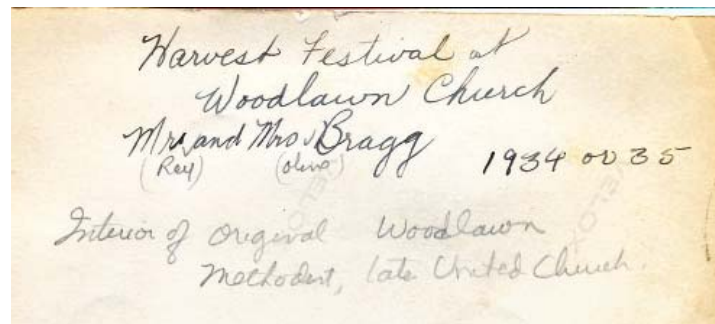 Harvest Festival at
Woodlawn Church
Mr. and Mrs. Bragg 1934 or 35
(Rey) (olive)
Interior of Original Woodlawn
Methodist, late United Church.